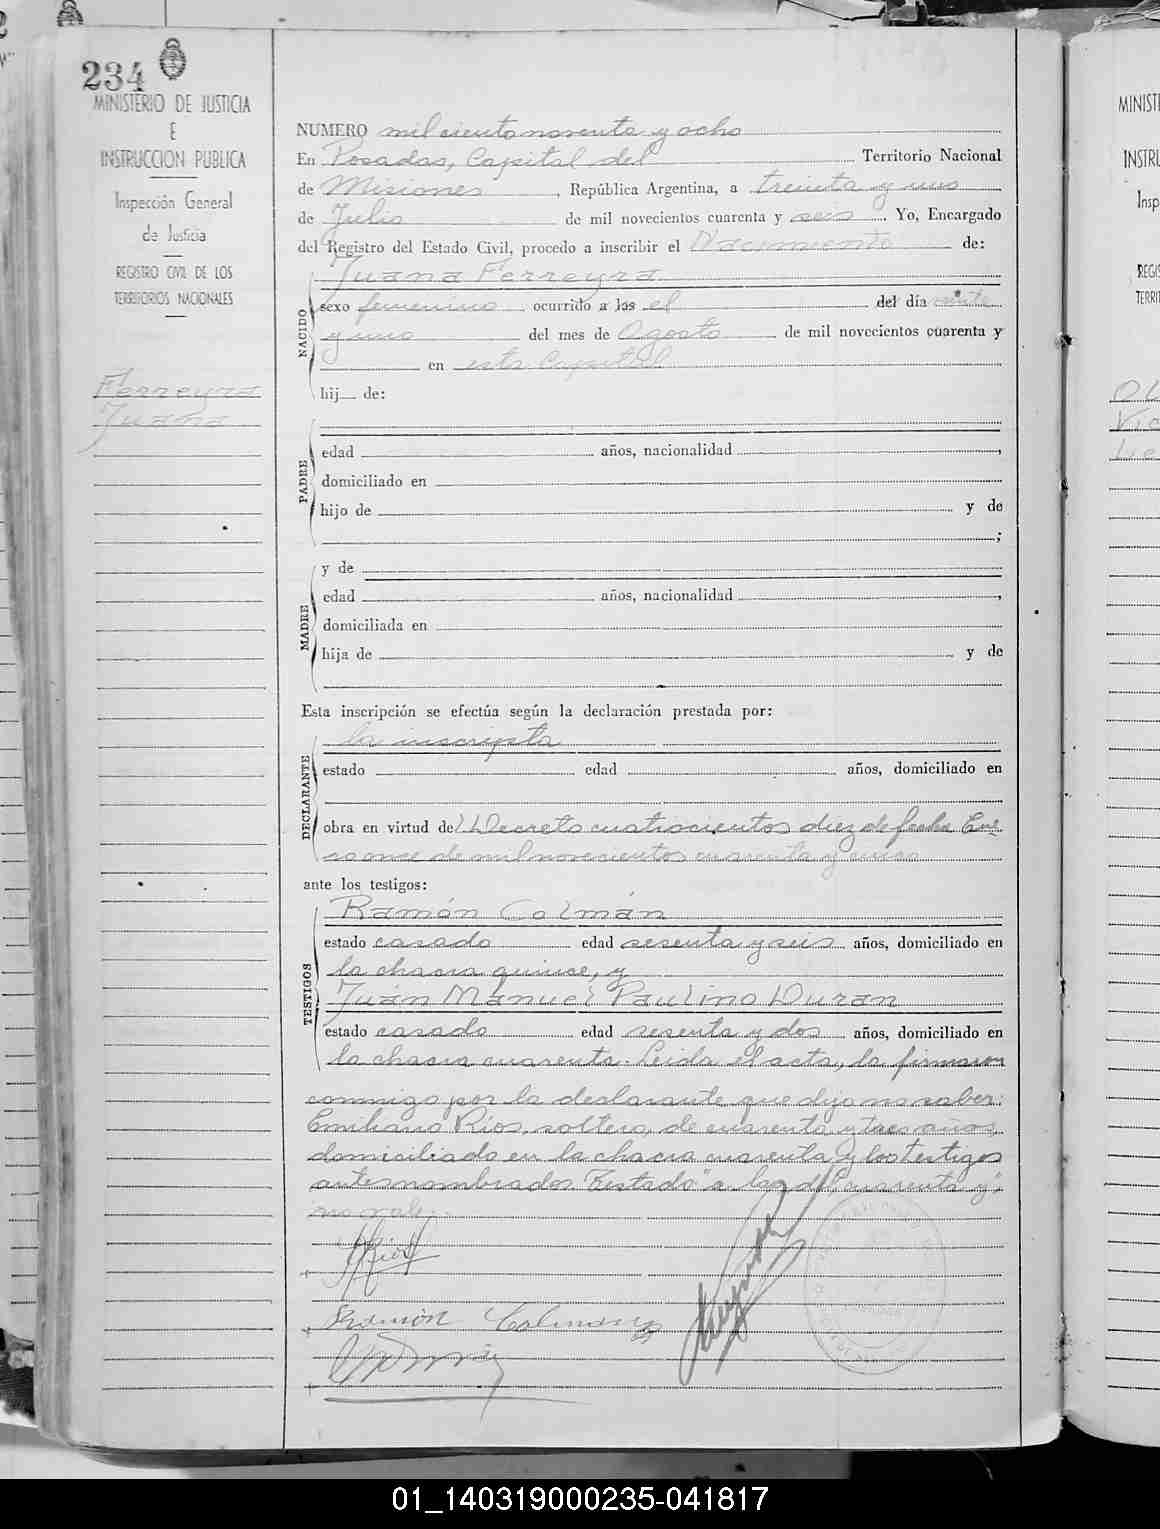 234
MINISTERIO DE JUSTICIA
E
INSTRUCCION PUBLICA
Inspección General
de Justicia
REGISTRO CIVIL DE LOS
TERRITORIOS NACIONALES
Ferreyra
Juana
NUMERO mil ciento noventa y ocho
En Posadas, Capital del Territorio Nacional
de Misiones, República Argentina, a treinta y uno
de Julio de mil novecientos cuarenta y seis. Yo, Encargado
del Registro del Estado Civil, procedo a inscribir el Nacimiento de:
NACIDO
Juana Ferreyra
sexo femenino ocurrido a las el del día veinte
y uno del mes de Agosto de mil novecientos cuarenta y
en esta Capital
hij de:
PADRE
edad años, nacionalidad ,
domiciliado en
hijo de y de
;
MADRE
y de
edad años, nacionalidad ,
domiciliada en
hija de y de
Esta inscripción se efectúa según la declaración prestada por:
DECLARANTE
la inscripta
estado edad años, domiciliado en
obra en virtud del Decreto cuatrocientos diez de fecha Ene
ro once de mil novecientos cuarenta y cinco
ante los testigos:
TESTIGOS
Ramón Colmán
estado casado edad sesenta y seis años, domiciliado en
la chacra quince, y
Juán Manuel Paulino Duran
estado casado edad sesenta y dos años, domiciliado en
la chacra cuarenta. Leida el acta, la firmaron
conmigo por la declarante que dijo no saber:
Emiliano Rios, soltero, de cuarenta y tres años,
domiciliado en la chacra cuarenta y los testigos
antes nombrados. Testado "a las d" "cuarenta y",
no vale.
Ramón Colman
MINISTE
INSTRU
Insp
REGIS
TERRIT
01_140319000235-041817